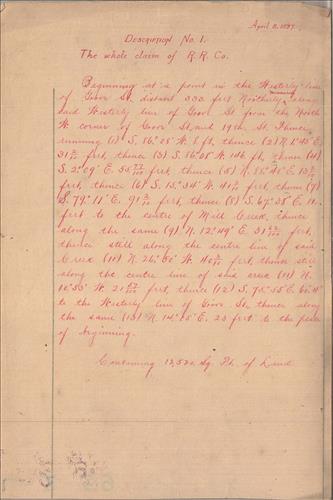 April 8, 1897.
Description No. 1.
The whole claim of R.R. Co.
Beginning at a point in the Westerly line
of Goov St. distant 333 feet Northerly along
said Westerly line of Goov St from the North
W. corner of Goov St. and 19th St. Thence
running (1) S, 56° 25' W. 8 ft, thence (2) N. 1° 45' E.
31 feet, thence (3) S. 56° 08' W. 146 ft, thence (4)
S. 2° 09' E. feet, thence (5) N. 88° 45' E.
feet, thence (6) S. 13° 34' W. feet, thence (7)
S. 79° 11' E. feet, thence (8) S. 67° 38' E.
feet to the centre of Mill Creek, thence
along the same (9) N. 12° 49' E. feet,
thence still along the centre line of said
Creek (10) N. 26° W. feet, thence still
along the centre line of said creek (11) N.
10° 53' W. feet, thence (12) S. 75° 55' E.
to the Westerly line of Goov St. thence along
the same (13) N. 14° 15' E. 23 feet to the place
of beginning.
Containing Sq. Ft. of Land